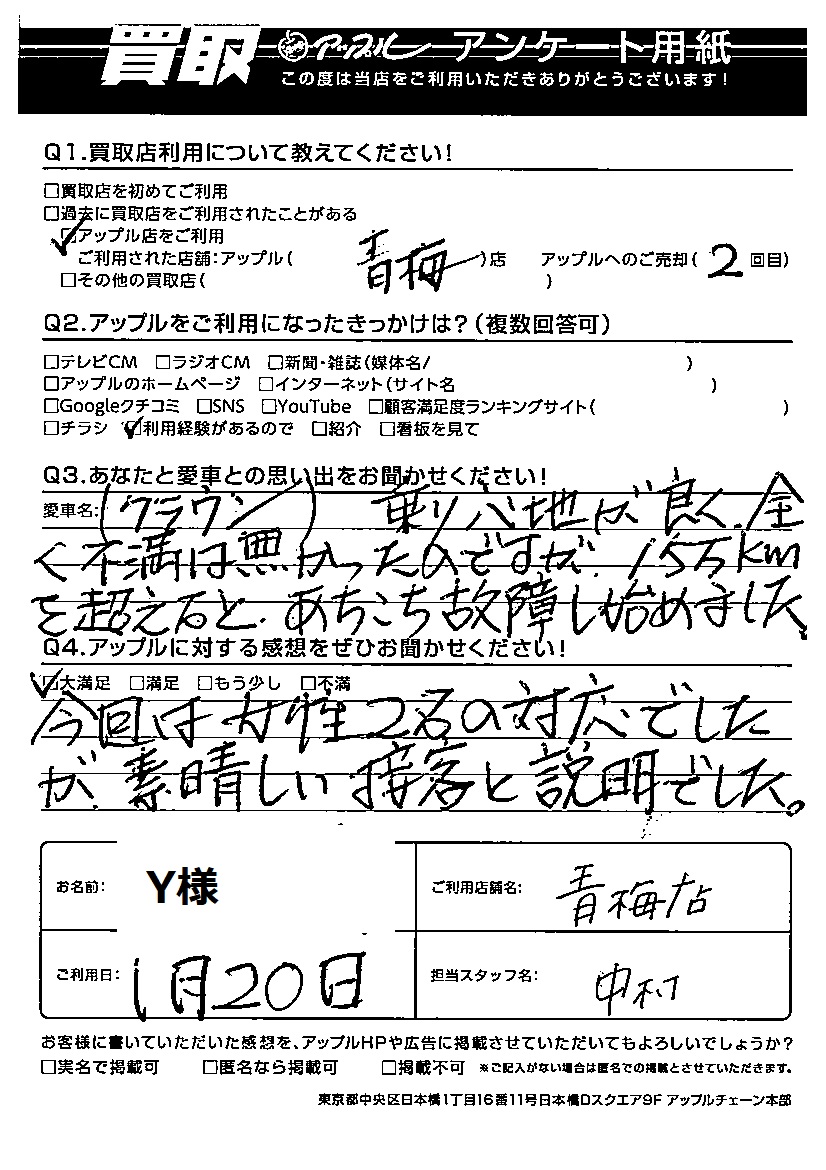 買取 アップル アンケート用紙
この度は当店をご利用いただきありがとうございます!
Q1.買取店利用について教えてください!
□買取店を初めてご利用
□過去に買取店をご利用されたことがある
☑アップル店をご利用
ご利用された店舗:アップル( 青梅 )店 アップルへのご売却( 2 回目)
□その他の買取店( )
Q2.アップルをご利用になったきっかけは?(複数回答可)
□テレビCM □ラジオCM □新聞・雑誌(媒体名/ )
□アップルのホームページ □インターネット(サイト名 )
□Googleクチコミ □SNS □YouTube □顧客満足度ランキングサイト( )
□チラシ ☑利用経験があるので □紹介 □看板を見て
Q3.あなたと愛車との思い出をお聞かせください!
愛車名:(クラウン) 乗り心地が良く、全
く不満は無かったのですが、15万km
を超えると、あちこち故障し始めました
Q4.アップルに対する感想をぜひお聞かせください!
☑大満足 □満足 □もう少し □不満
今回は女性2名の対応でした
が、素晴しい接客と説明でした。
お名前: Y様 ご利用店舗名: 青梅店
ご利用日: 1月20日 担当スタッフ名: 中村
お客様に書いていただいた感想を、アップルHPや広告に掲載させていただいてもよろしいでしょうか?
□実名で掲載可 □匿名なら掲載可 □掲載不可 ※ご記入がない場合は匿名での掲載とさせていただきます。
東京都中央区日本橋1丁目16番11号日本橋Dスクエア9F アップルチェーン本部